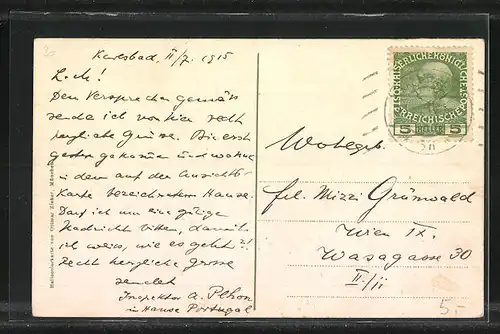 Karlsbad, II/7. 1915
L. M!
Dem Versprechen gemäss
sende ich von hier recht
herzliche Grüsse. Bin erst
gestern gekommen und wohne
in dem auf der Ansichts-
Karte bezeichneten Hause.
Darf ich um eine gütige
Nachricht bitten, damit
ich weiss, wie es geht?!
Recht herzliche Grüsse
sendet
Inspektor A.
in Hause Portugal
KAISERLICHE KÖNIGLICHE ÖSTERREICHISCHE
5 HELLER 5
Wohlgeb.
Frl. Mizzi Grünwald
Wien IX.
Wasagasse 30
II/11
5.-